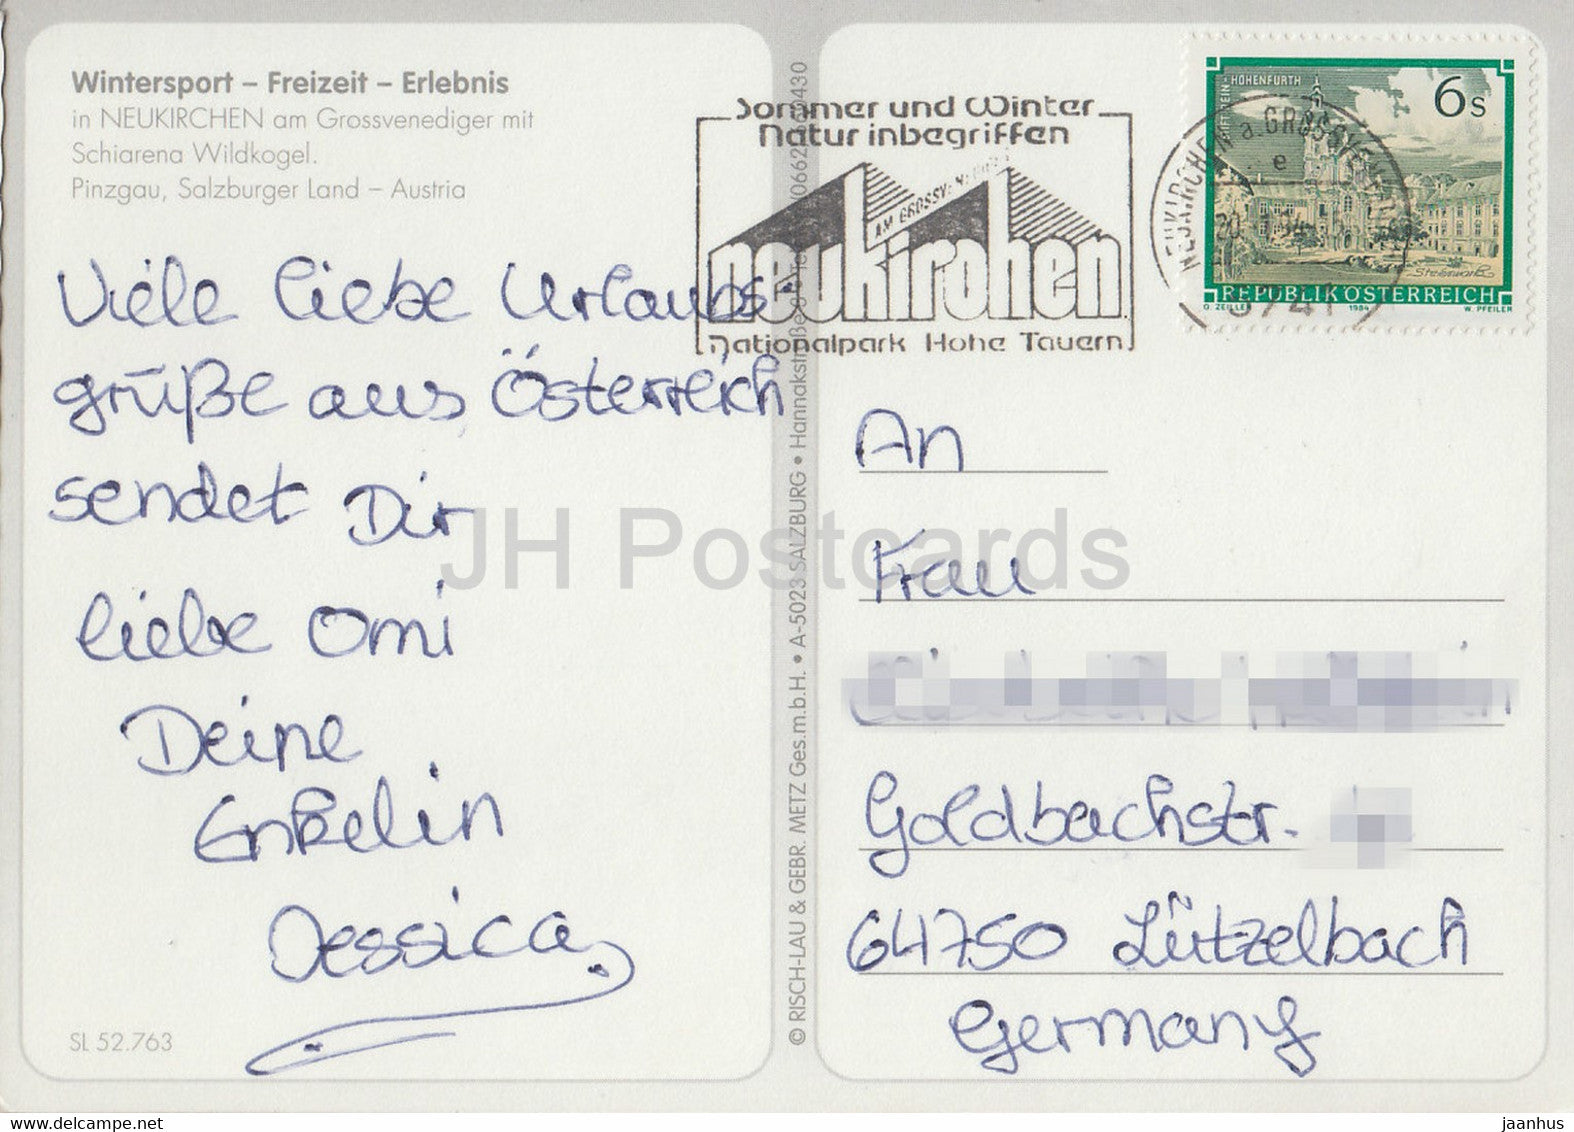 Wintersport – Freizeit – Erlebnis
in NEUKIRCHEN am Grossvenediger mit
Schiarena Wildkogel.
Pinzgau, Salzburger Land – Austria
Viele liebe Urlaubs-
grüße aus Österreich
sendet Dir
liebe Omi
Deine
Enkelin
Jessica
SL 52.763
© RISCH-LAU & GEBR. METZ Ges.m.b.H. • A-5023 SALZBURG • Hannakstraße
Sommer und Winter
Natur inbegriffen
AM GROSSVENEDIGER
neukirchen
Nationalpark Hohe Tauern
NEUKIRCHEN a. GROSSVENEDIGER
e
5741
HOHENFURTH
6 s
REPUBLIK ÖSTERREICH
O. ZEILLER 1984 W. PFEILER
An
Frau
Goldbachstr.
64750 Lützelbach
Germany
JH Postcards
delcampe.net
jaanhus